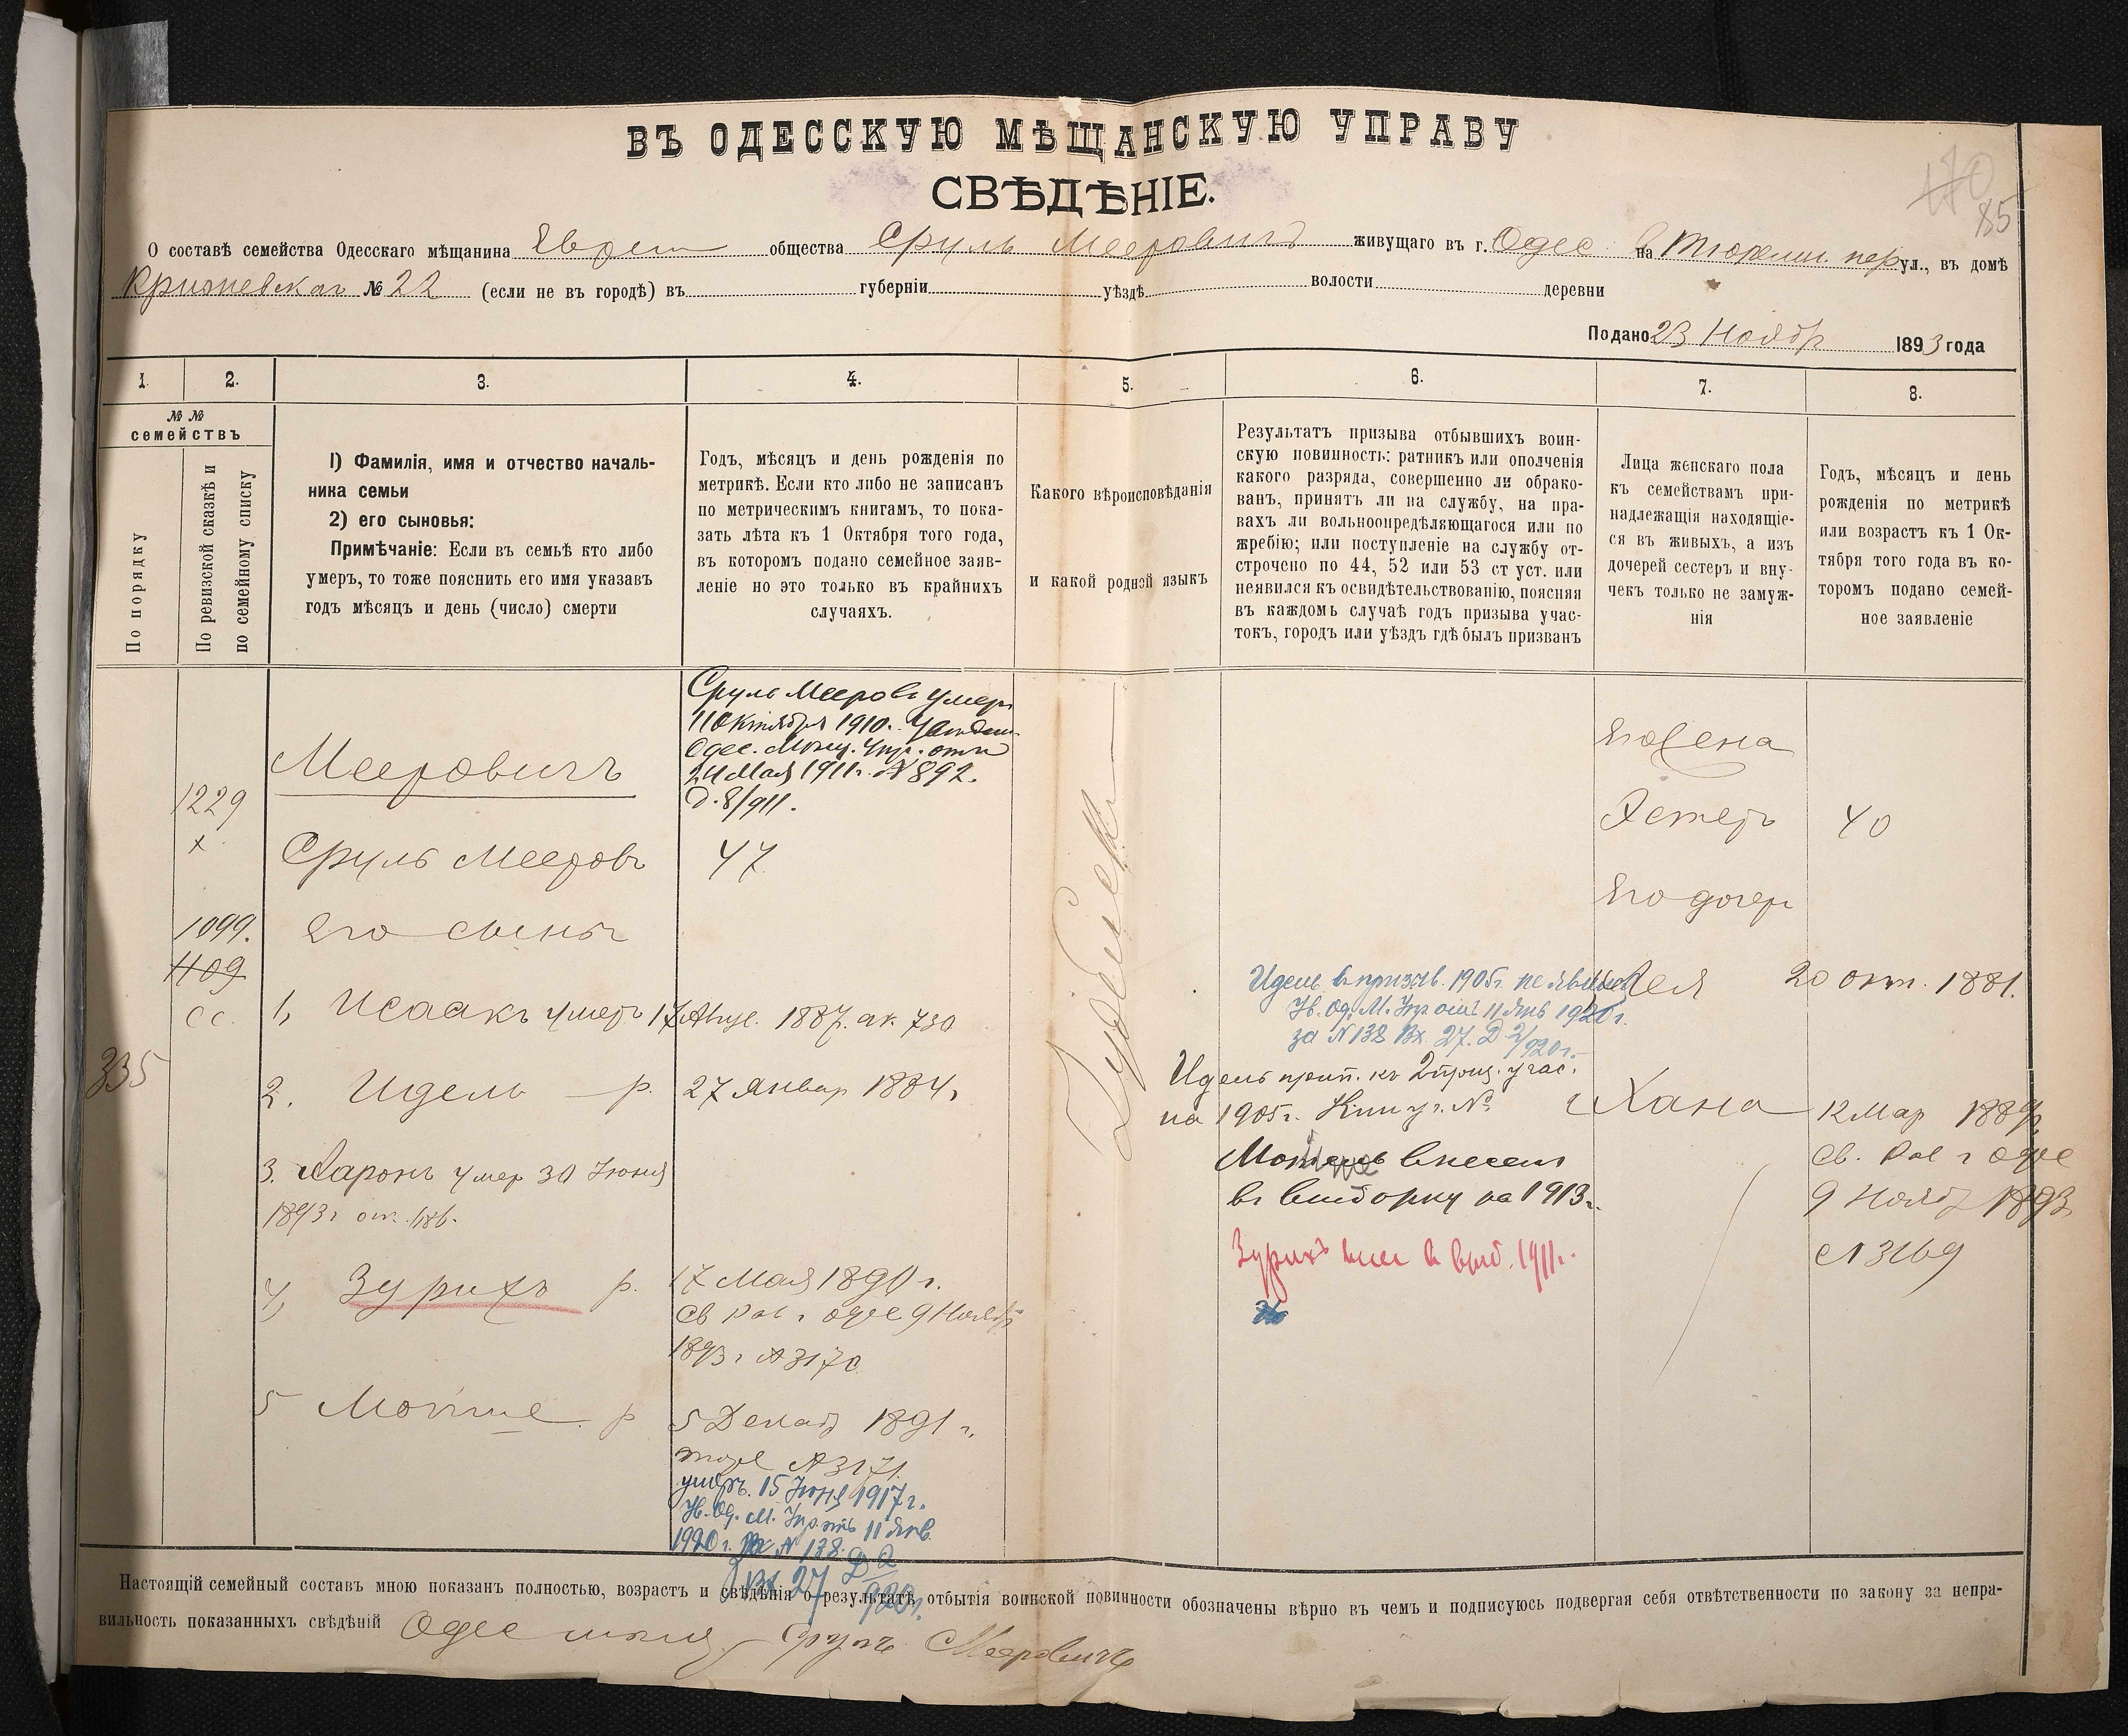 ВЪ ОДЕССКУЮ МѢЩАНСКУЮ УПРАВУ
СВѢДѢНІЕ.
170
85
О составѣ семейства Одесскаго мѣщанина Еврея общества Сруль Мееровичъ живущаго въ г. Одес на Тюремн. пер ул., въ домѣ
№ 22 (если не въ городѣ) въ губерніи уѣздѣ волости деревни
Подано 23 Ноябр 1893 года
1. 2. 3. 4. 5. 6. 7. 8.
№ №
семействъ
По порядку
По ревизской сказкѣ и
по семейному списку
1) Фамилія, имя и отчество началь-
ника семьи
2) его сыновья:
Примѣчаніе: Если въ семьѣ кто либо
умеръ, то тоже пояснить его имя указавъ
годъ мѣсяцъ и день (число) смерти
Годъ, мѣсяцъ и день рожденія по
метрикѣ. Если кто либо не записанъ
по метрическимъ книгамъ, то пока-
зать лѣта къ 1 Октября того года,
въ которомъ подано семейное заяв-
леніе но это только въ крайнихъ
случаяхъ.
Какого вѣроисповѣданія
и какой родной языкъ
Результатъ призыва отбывшихъ воин-
скую повинность: ратникъ или ополченія
какого разряда, совершенно ли обрако-
ванъ, принятъ ли на службу, на пра-
вахъ ли вольноопредѣляющагося или по
жребію; или поступленіе на службу от-
строчено по 44, 52 или 53 ст уст. или
неявился къ освидѣтельствованію, поясняя
въ каждомъ случаѣ годъ призыва учас-
токъ, городъ или уѣздъ гдѣ былъ призванъ
Лица женскаго пола
къ семействамъ при-
надлежащія находящіе-
ся въ живыхъ, а изъ
дочерей сестеръ и вну-
чекъ только не замуж-
нія
Годъ, мѣсяцъ и день
рожденія по метрикѣ
или возрастъ къ 1 Ок-
тября того года въ ко-
торомъ подано семей-
ное заявленіе
335
1229
х
1099.
1109
сс.
Мееровичъ
Сруль Мееровъ
Его сыны
1, Исаакъ умеръ 17 Авгус. 1887. ак. 730
2. Идель р. 27 Январ 1884,
3. Ааронъ умер 30 Іюня
1893 г
4, Зурихъ р. 17 Мая 1890 г.
5 Мойше р 5 Декаб 1891 г.
Сруль Мееровъ умеръ
11 Октября 1910 г.
Одес. Мѣщ. Упр. отъ
24 Мая 1911 г. № 892.
д. 8/911.
47
св Рав г Одес 9 Ноябр
1893 г № 3170
тоже № 3171.
умеръ. 15 Іюня 1917 г.
Ув. Од. М. Упр отъ 11 Янв.
1920 г. № 138.
Вх 27 Д 2/920 г.
Іудейск
Идель въ призыв. 1905 г. не явился
Ув. Од. М. Упр отъ 11 Янв 1920 г.
за № 138 Вх. 27. Д 2/920 г.
Идель прип. къ 2 приз. учас.
на 1905 г. №
внесенъ
въ выборку на 1913 г.
Зурихъ внес в выб. 1911 г.
Его жена
Эстеръ 40
Его дочери
Лея 20 окт. 1881.
Хана 12 Мар 1889 г,
Св. Рав г Одес
9 Ноябр 1893
№ 3169
Настоящій семейный составъ мною показанъ полностью, возрастъ и свѣдѣнія о результатѣ отбытія воинской повинности обозначены вѣрно въ чемъ и подписуюсь подвергая себя отвѣтственности по закону за непра-
вильность показанныхъ свѣдѣній Сруль Мееровичъ